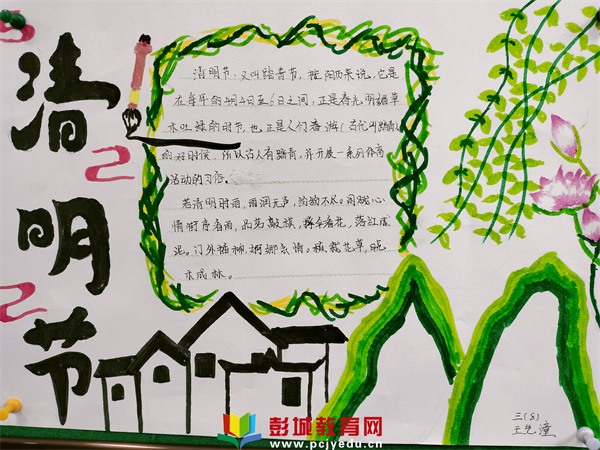 清明节
清明节,又叫踏青节,按阳历来说,它是
在每年的4月4日至6日之间,正是春光明媚草
木吐绿的时节,也正是人们春游(古代叫踏青)
的好时候,所以古人有踏青,并开展一系列体育
活动的习俗。
若清明时雨,细润无声,纷纷不尽。闲观心
情街序春雨,品茗敲棋,
看花,落红成
泥。门外插柳,婀娜多情。植栽花草,晓
木成林。
三(8)
王艺潼
彭城教育网
www.pcjyedu.cn